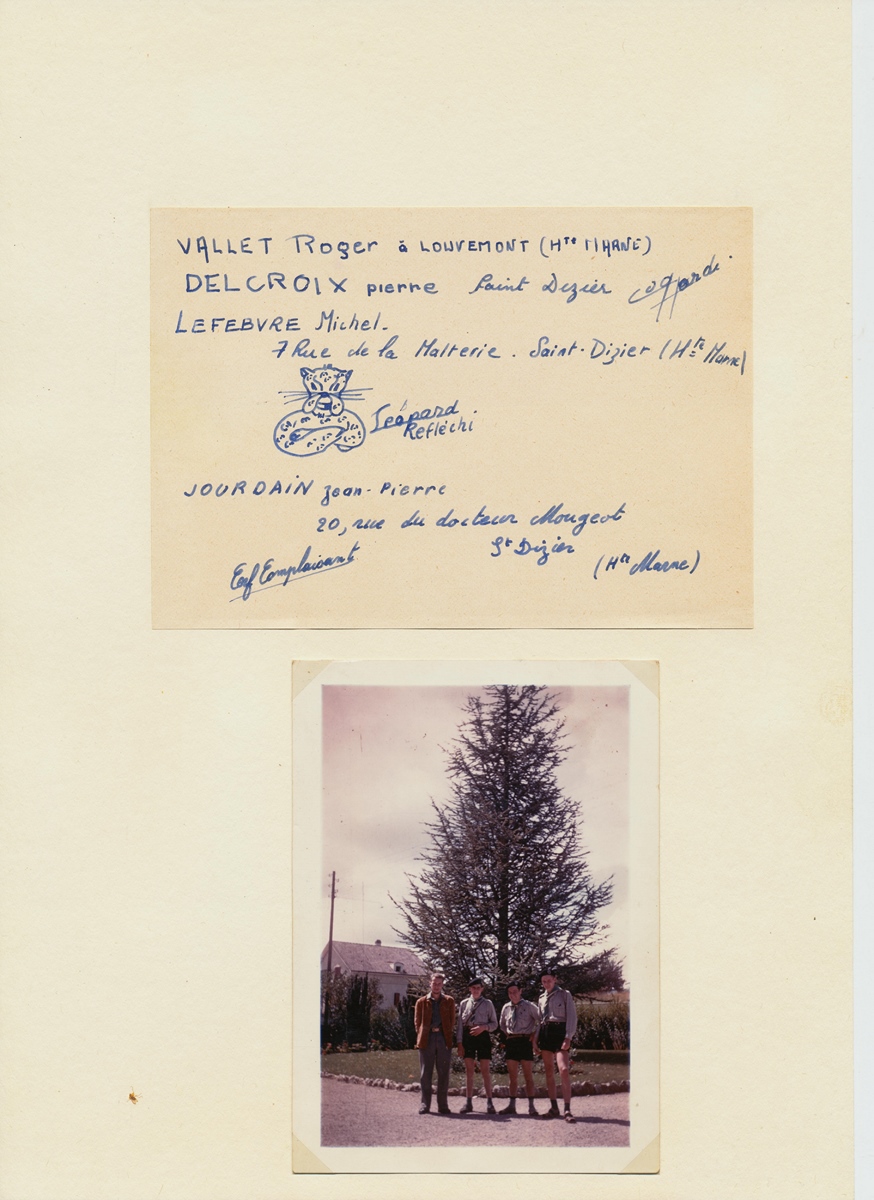 VALLET Roger à LOUVEMONT (Hte MARNE)
DELCROIX pierre Saint Dizier
LEFEBVRE Michel.
7 Rue de la Malterie. Saint-Dizier (Hte Marne)
Léopard
Refléchi
JOURDAIN Jean-Pierre
20, rue du docteur Mougeot
St Dizier
(Hte Marne)
Cerf Complaisant